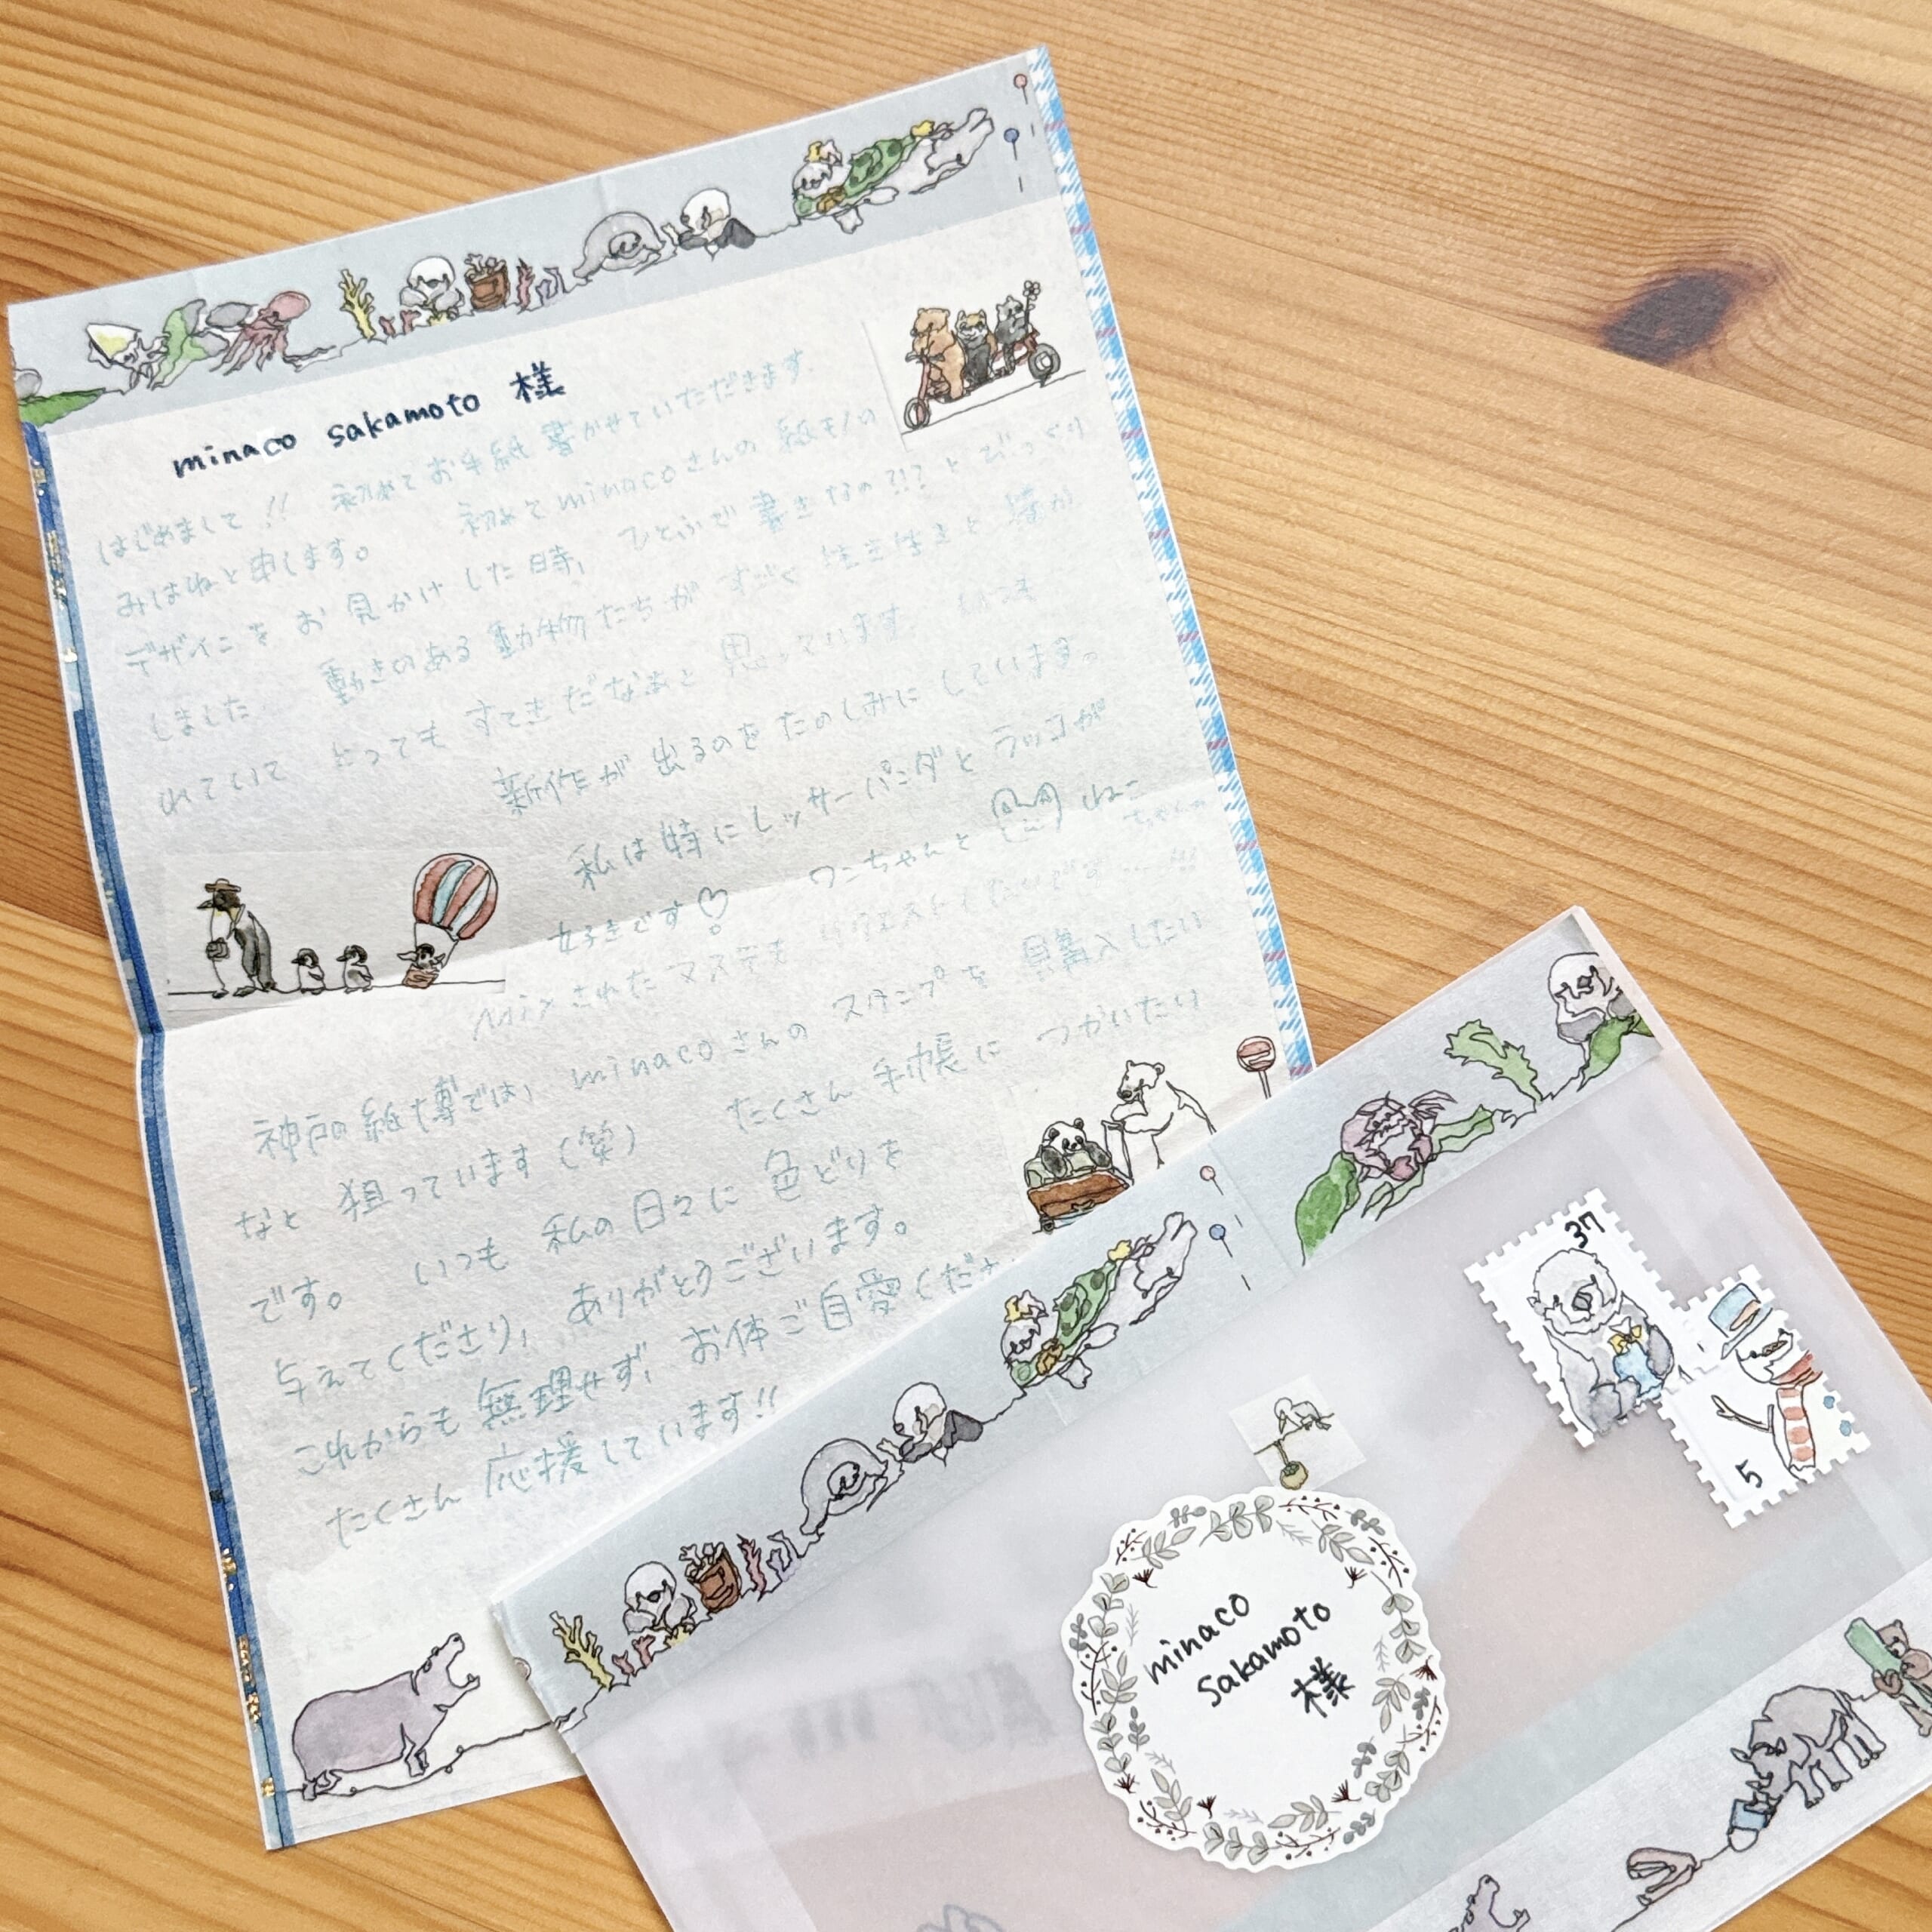 minaco sakamoto 様
はじめまして!! 初めてお手紙書かせていただきます。
みはねと申します。 初めてminacoさんの紙モノの
デザインをお見かけした時、ひとふで書きなの?!?とびっくり
しました 動きのある動物たちがすごく生き生きと描か
れていて とってもすてきだなぁと思っています。
新作が出るのをたのしみにしています。
私は特にレッサーパンダとラッコが
好きです♡ ワンちゃんと ねこ
ちゃんの
Mixされたマステも リクエストしたいです……!!!
神戸の紙博では、minacoさんのスタンプを購入したい
なと狙っています(笑) たくさん手帳につかいたい
です。 いつも私の日々に色どりを
与えてくださり、ありがとうございます。
これからも無理せず、お体ご自愛くださ
たくさん応援しています!!
37
5
minaco
sakamoto
様